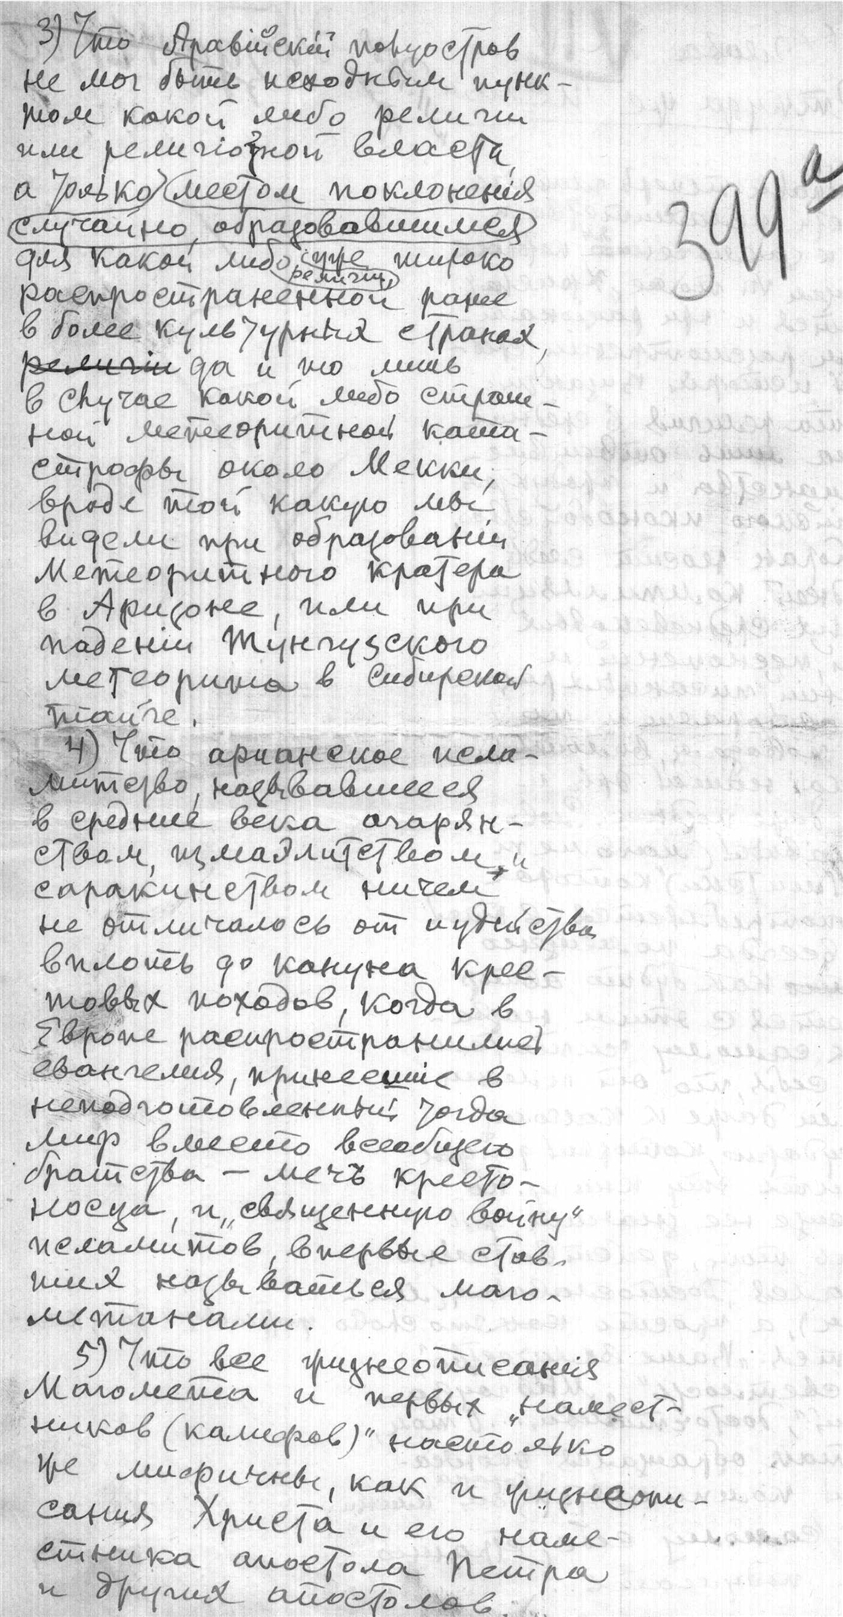 399а
3) Что Аравійскій полуостров
не мог быть исходным пунк-
том какой либо религии
или религіозной власти,
а только местом поклоненія
случайно образовавшимся
для какой либо уже широко
религии,
распространенной ранее
в более культурных странах,
религіи да и то лишь
в случае какой либо страш-
ной метеоритной ката-
строфы около Мекки,
вроде той какую мы
видели при образованіи
Метеоритного кратера
в Аризоне, или при
паденіи Тунгузского
метеорита в Сибирской
тайге.
4) Что арианское исла-
митство, называвшееся
в средние века агарян-
ством, измаэлитством и
саракинством ничем
не отличалось от иудейства
вплоть до кануна крес-
товых походов, когда в
Европе распространились
евангелия, принесшие в
неподготовленный тогда
мир вместо всеобщего
братства — мечъ кресто-
носца, и „священную войну"
исламитов, впервые став-
ших называться маго-
метанами.
5) Что все жизнеописанія
Магомета и первых „намест-
ников (калифов)" настолько
же мифичны, как и жизнеопи-
сания Христа и его наме-
стника апостола Петра
и других апостолов.